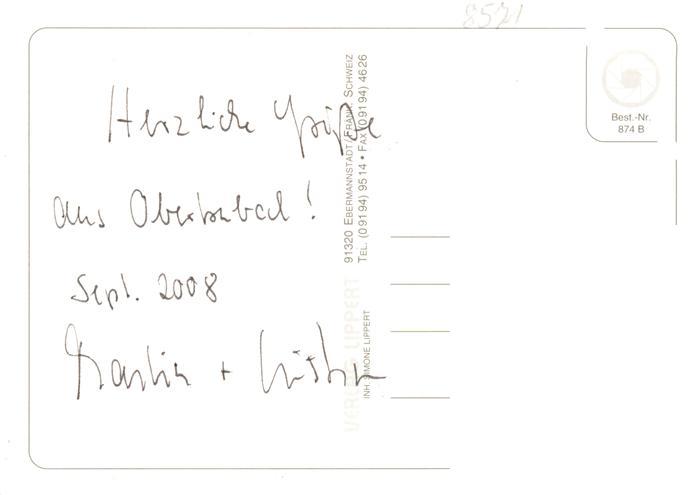 8521
Herzliche Grüße
aus Obertrubach!
Sept. 2008
Martin +
VERLAG LIPPERT
INH. SIMONE LIPPERT
91320 EBERMANNSTADT/FRÄNK. SCHWEIZ
TEL. (0 91 94) 95 14 • FAX (0 91 94) 46 26
Best.-Nr.
874 B